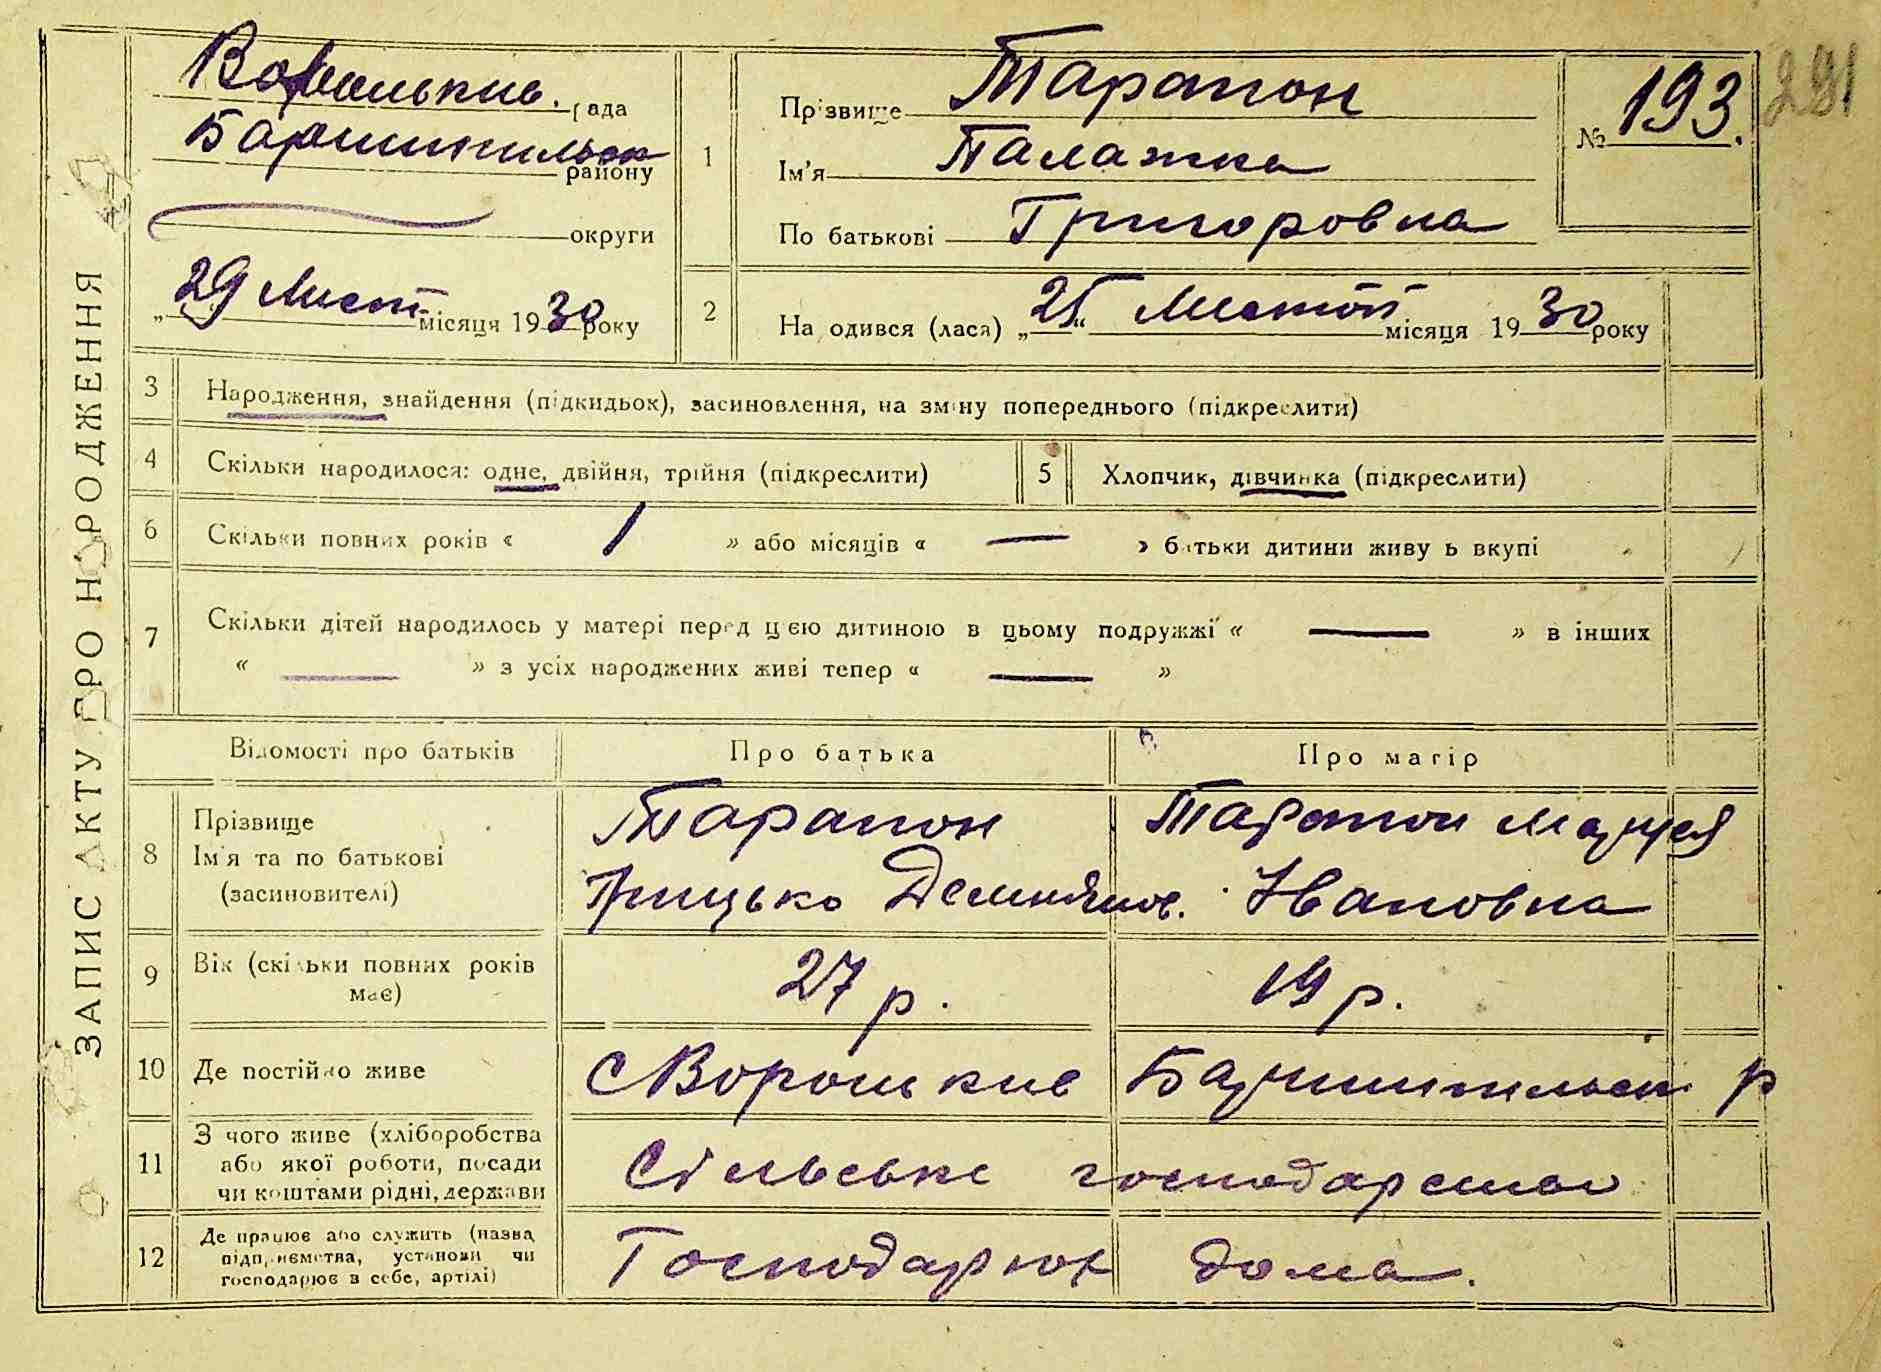 ЗАПИС АКТУ ПРО НАРОДЖЕННЯ
Вороньків. рада
Баришпільск району
округи
„29 Лист. місяця 1930 року
1
Прізвище Тарапон
Ім'я Палажка
По батькові Григоровна
№ 193.
291
2
На одився (лася) „25“ Листоп місяця 1930 року
3 Народження, знайдення (підкидьок), засиновлення, на зміну попереднього (підкреслити)
4 Скільки народилося: одне, двійня, трійня (підкреслити)
5 Хлопчик, дівчинка (підкреслити)
6 Скільки повних років « 1 » або місяців « — » батьки дитини живу ь вкупі
7 Скільки дітей народилось у матері перед цією дитиною в цьому подружжі « — » в інших
« — » з усіх народжених живі тепер « — »
Відомості про батьків Про батька Про матір
8 Прізвище
Ім'я та по батькові
(засиновителі)
Тарапон
Грицько Демянов.
Тарапон Марія
Івановна
9 Вік (скільки повних років
має)
27 р. 19 р.
10 Де постійно живе с Вороньків Баришпільск р
11 З чого живе (хліборобства
або якої роботи, посади
чи коштами рідні, держави
Сільське господарство
12 Де працює або служить (назва
підприємства, установи чи
господарює в себе, артілі)
Господарюх дома.